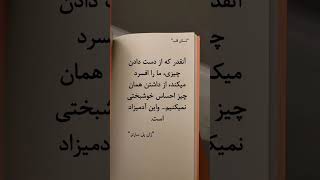 آنقدر که از دست دادن
چیزی، ما را افسرد
میکند، از داشتن همان
چیز احساس خوشبختی
نمیکنیم.. واین آدمیزاد
است.
"ژان پل سارتر"